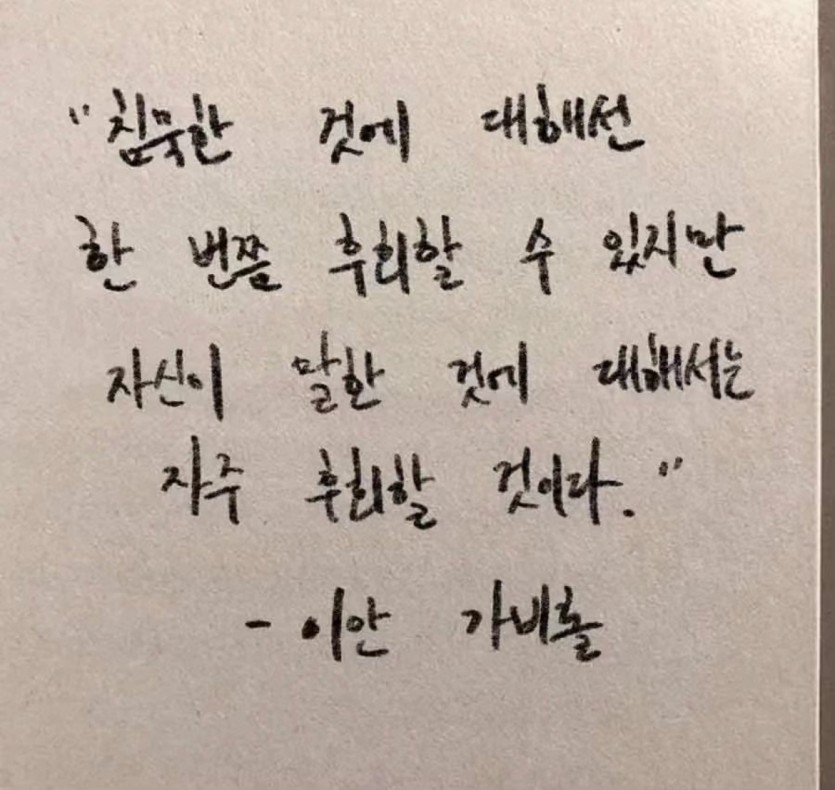 "침묵한 것에 대해선
한 번쯤 후회할 수 있지만
자신이 말한 것에 대해서는
자주 후회할 것이다."
- 이안 가비롤